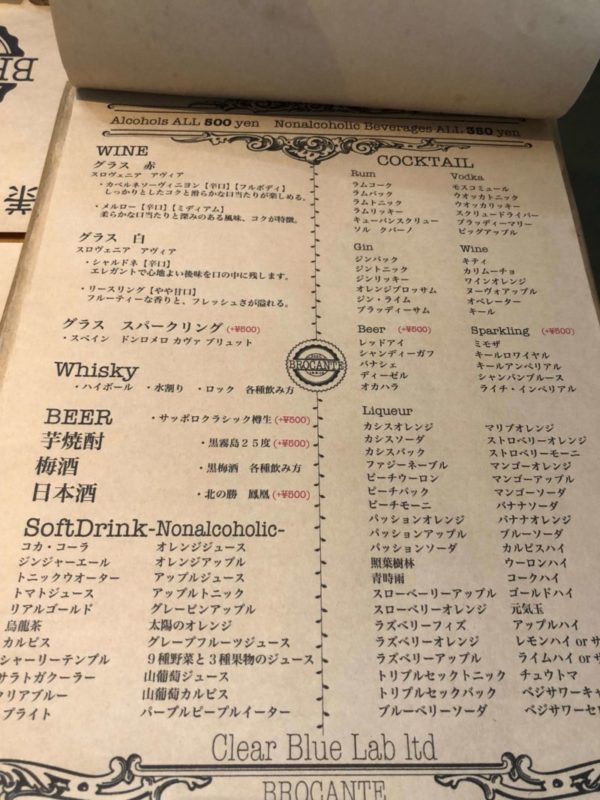 Alcohols ALL 500 yen Nonalcoholic Beverages ALL 350 yen
WINE
グラス 赤
スロヴェニア アヴィア
・カベルネソーヴィニヨン【辛口】【フルボディ】
しっかりとしたコクと滑らかな口当たりが楽しめる。
・メルロー【辛口】【ミディアム】
柔らかな口当たりと深みのある風味、コクが特徴。
グラス 白
スロヴェニア アヴィア
・シャルドネ【辛口】
エレガントで心地よい後味を口の中に残します。
・リースリング【やや甘口】
フルーティーな香りと、フレッシュさが溢れる。
グラス スパークリング (+¥500)
・スペイン ドンロメロ カヴァ ブリュット
Whisky
・ハイボール ・水割り ・ロック 各種飲み方
BEER ・サッポロクラシック樽生 (+¥500)
芋焼酎 ・黒霧島25度 (+¥500)
梅酒 ・黒梅酒 各種飲み方
日本酒 ・北の勝 鳳凰 (+¥500)
SoftDrink-Nonalcoholic-
コカ・コーラ オレンジジュース
ジンジャーエール オレンジアップル
トニックウオーター アップルジュース
トマトジュース アップルトニック
リアルゴールド グレーピンアップル
烏龍茶 太陽のオレンジ
カルピス グレープフルーツジュース
シャーリーテンプル 9種野菜と3種果物のジュース
サラトガクーラー 山葡萄ジュース
クリアブルー 山葡萄カルピス
プライト パープルピープルイーター
BROCANTE
COCKTAIL
Rum
ラムコーク
ラムバック
ラムトニック
ラムリッキー
キューバンスクリュー
ソル クバーノ
Vodka
モスコミュール
ウオッカトニック
ウオッカリッキー
スクリュードライバー
ブラッディーマリー
ビッグアップル
Gin
ジンバック
ジントニック
ジンリッキー
オレンジブロッサム
ジン・ライム
ブラッディーサム
Wine
キティ
カリムーチョ
ワインオレンジ
ヌーヴォアップル
オペレーター
キール
Beer (+¥500)
レッドアイ
シャンディーガフ
パナシェ
ディーゼル
オカハラ
Sparkling (+¥500)
ミモザ
キールロワイヤル
キールアンペリアル
シャンパンブルース
ライチ・インペリアル
Liqueur
カシスオレンジ マリブオレンジ
カシスソーダ ストロベリーオレンジ
カシスバック ストロベリーモーニ
ファジーネーブル マンゴーオレンジ
ピーチウーロン マンゴーアップル
ピーチバック マンゴーソーダ
ピーチモーニ バナナソーダ
パッションオレンジ バナナオレンジ
パッションアップル ブルーソーダ
パッションソーダ カルピスハイ
照葉樹林 ウーロンハイ
青時雨 コークハイ
スローベーリーアップル ゴールドハイ
スローベリーオレンジ 元気玉
ラズベリーフィズ アップルハイ
ラズベリーオレンジ レモンハイ or サ
ラズベリーアップル ライムハイ or サ
トリプルセックトニック チュウトマ
トリプルセックバック ベジサワーキャ
ブルーベリーソーダ ベジサワーセ
Clear Blue Lab ltd
BROCANTE